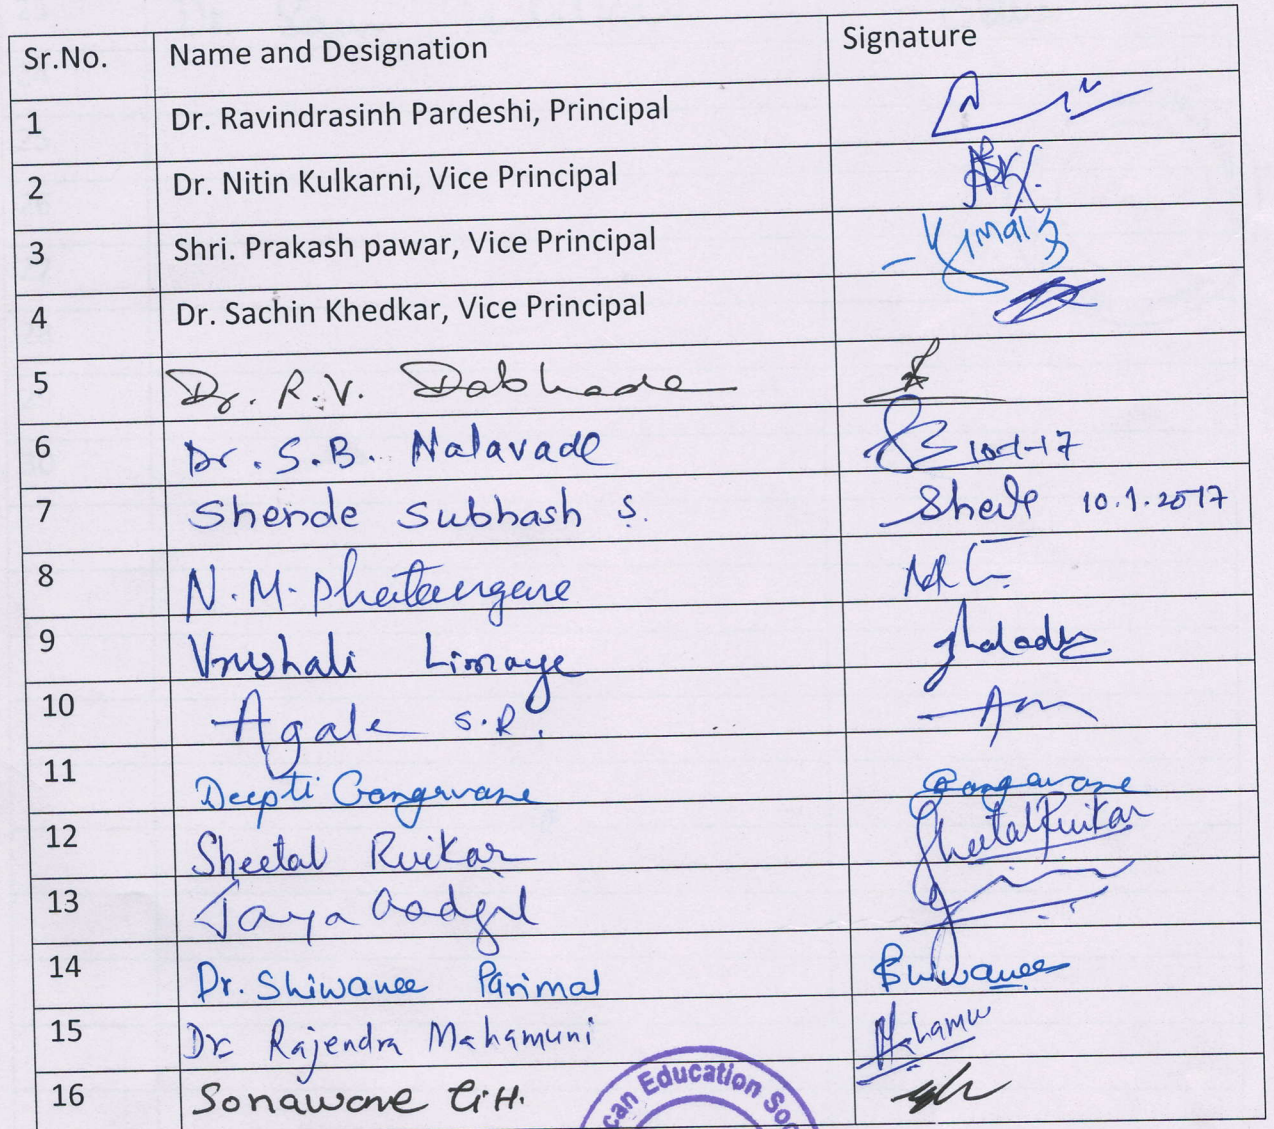 Sr.No. Name and Designation Signature
1 Dr. Ravindrasinh Pardeshi, Principal
2 Dr. Nitin Kulkarni, Vice Principal
3 Shri. Prakash pawar, Vice Principal
4 Dr. Sachin Khedkar, Vice Principal
5 Dr. R.V. Dabhade
6 Dr. S.B. Nalavade 10-1-17
7 Shende Subhash S. 10.1.2017
8 N.M. Dhatavgane
9 Vrushali Limaye
10 Agale S.R.
11 Deepti Gangavane Gangavane
12 Sheetal Ruikar Sheetal Ruikar
13 Jaya Gadgil
14 Dr. Shiwanee Parimal Shiwanee
15 Dr. Rajendra Mahamuni
16 Sonawane G.H.
can Education Soc